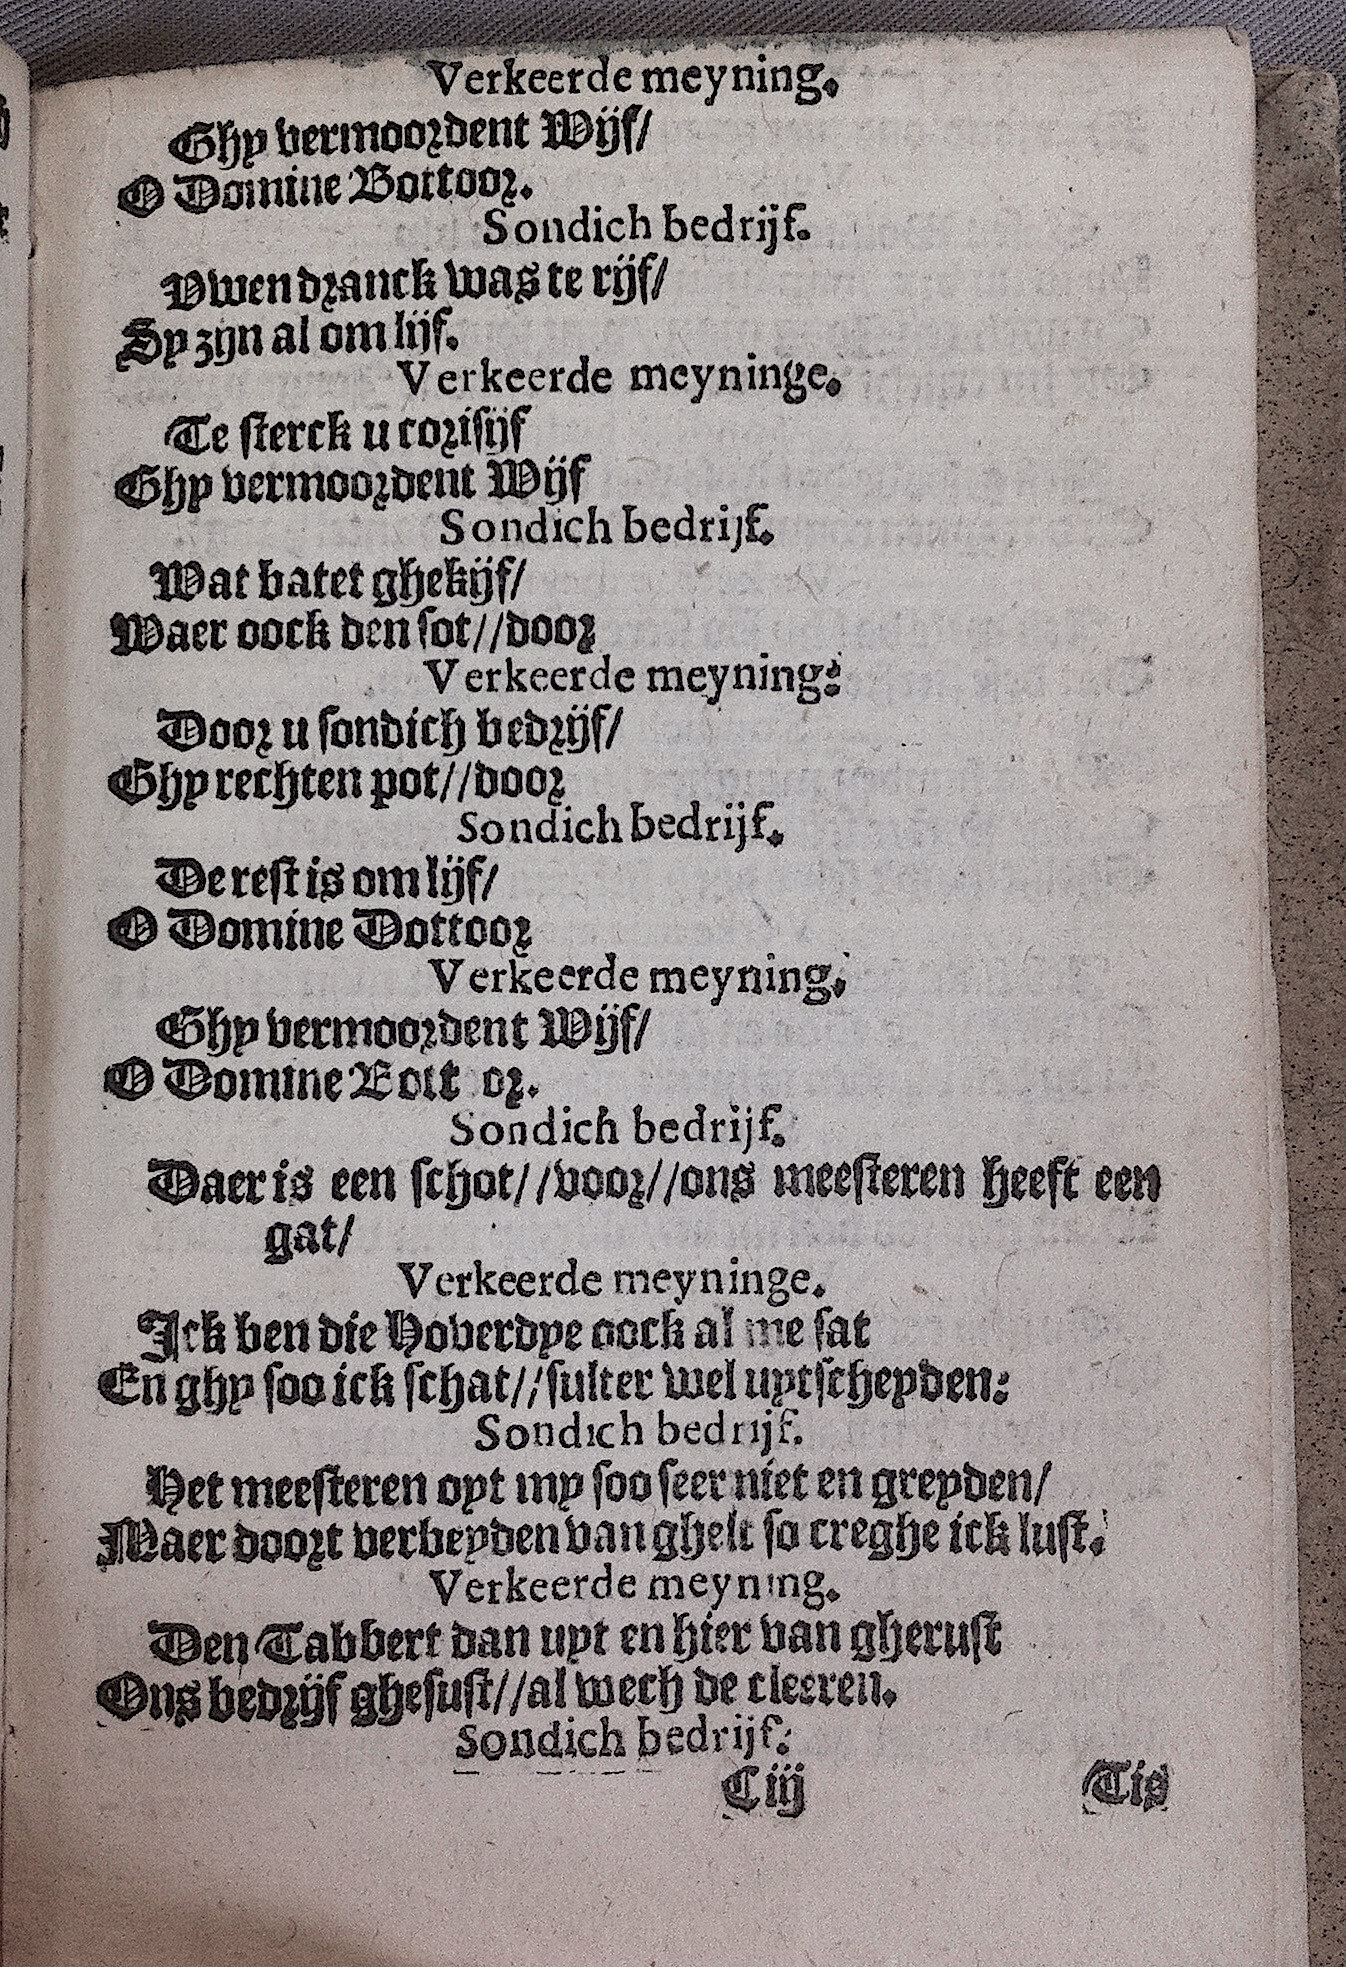 Verkeerde meyning.
Ghy vermoordent Wijf/
O Domine Bottoor.
Sondich bedrijf.
Uwen dranck was te rijf/
Sy zijn al om lijf.
Verkeerde meyninge.
Te sterck u corisijf
Ghy vermoordent Wijf
Sondich bedrijf.
Wat batet ghekijf/
Waer oock den sot//door
Verkeerde meyning:
Door u sondich bedrijf/
Ghy rechten pot//door
Sondich bedrijf.
De rest is om lijf/
O Domine Dottoor
Verkeerde meyning.
Ghy vermoordent Wijf/
O Domine Bott or.
Sondich bedrijf.
Daer is een schot//voor//ons meesteren heeft een
gat/
Verkeerde meyninge.
Ick ben die Hoverdye oock al me sat
En ghy soo ick schat//sulter wel uytscheyden:
Sondich bedrijf.
Het meesteren oyt my soo seer niet en greyden/
Maer doort verbeyden van ghelt so creghe ick lust.
Verkeerde meyning.
Den Tabbert dan uyt en hier van gherust
Ons bedrijf ghesust//al wech de cleeren.
Sondich bedrijf.
Ciij Tis